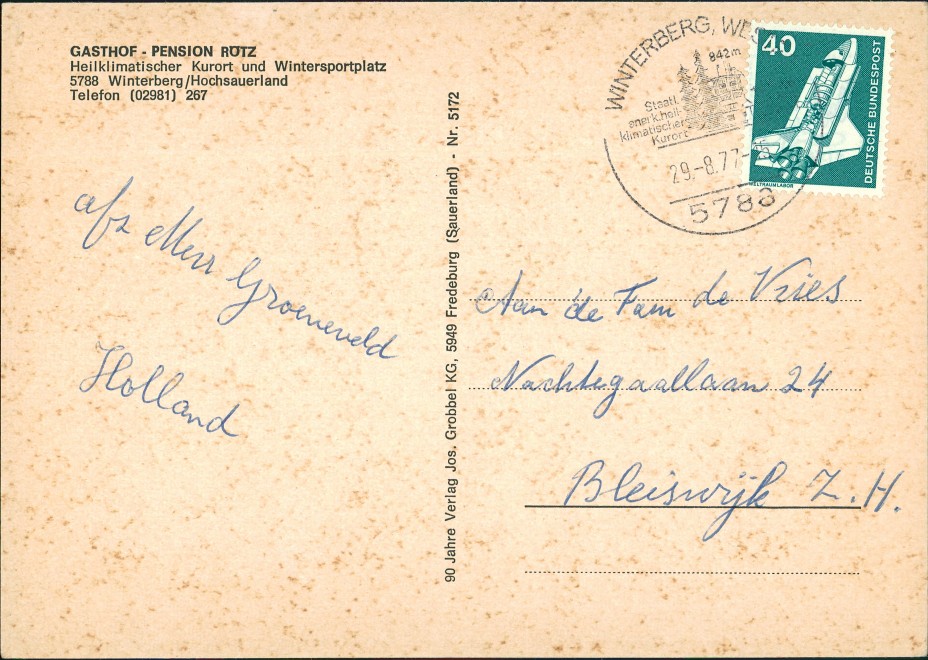 GASTHOF - PENSION RÜTZ
Heilklimatischer Kurort und Wintersportplatz
5788 Winterberg/Hochsauerland
Telefon (02981) 267
WINTERBERG, WES
842m
Staatl.
anerk.heil-
klimatischer
Kurort
29.-8.77
5788
40
DEUTSCHE BUNDESPOST
WELTRAUMLABOR
90 Jahre Verlag Jos. Grobbel KG, 5949 Fredeburg (Sauerland) - Nr. 5172
afz Groeneveld
Holland
Aan de Fam de Vries
Nachtegaallaan 24
Bleiswijk Z.H.